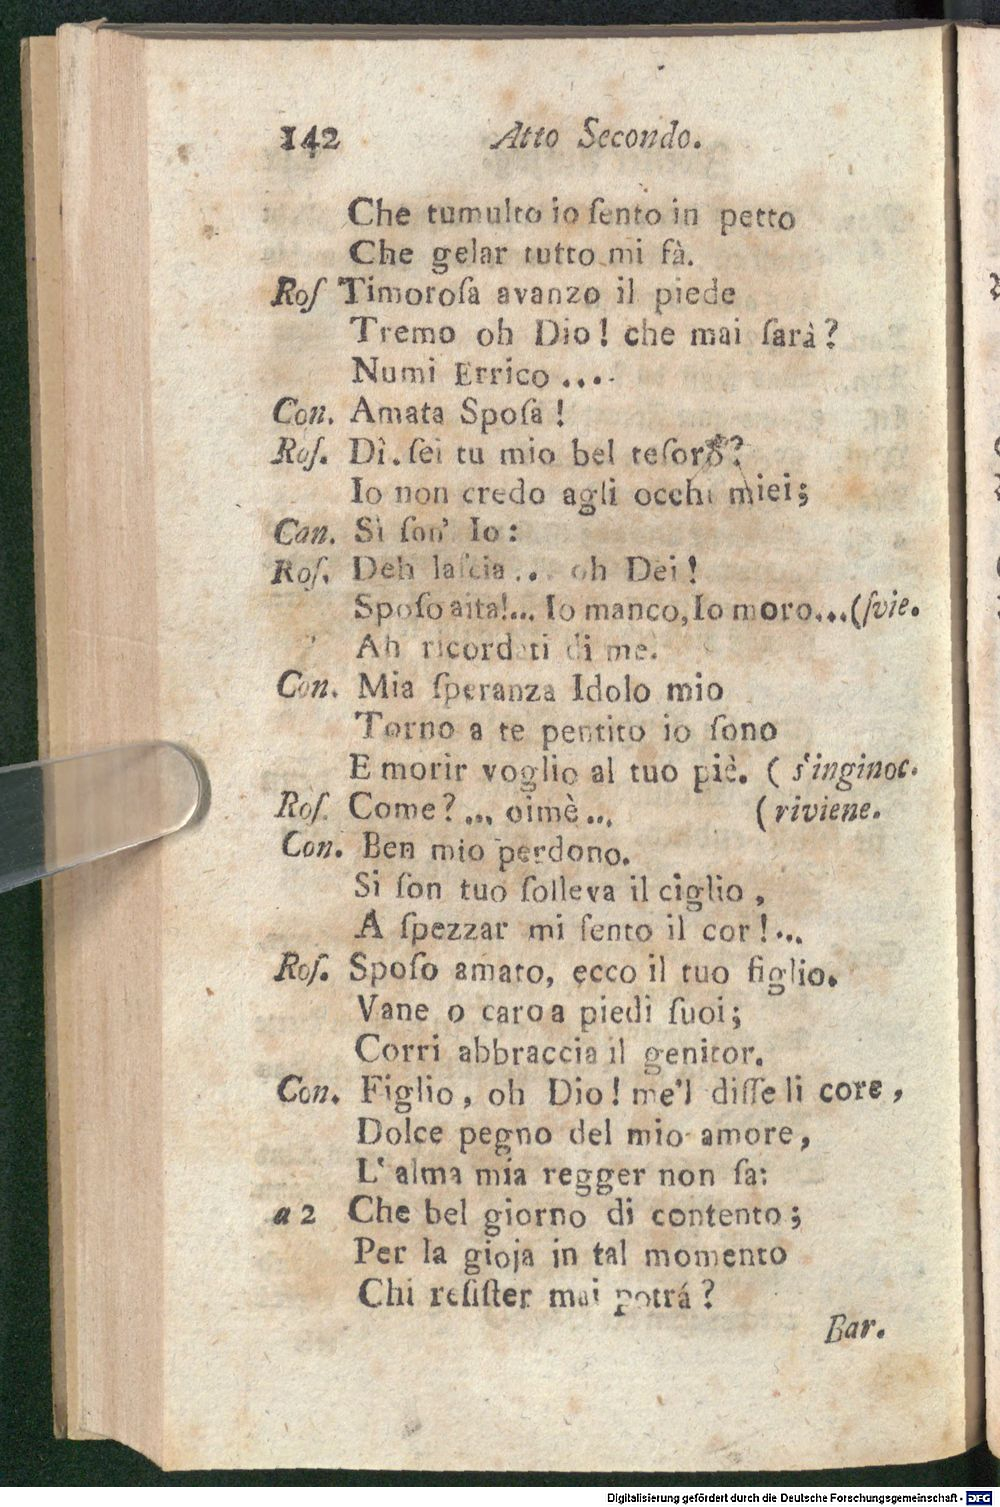 142 Atto Secondo.
Che tumulto io ſento in petto
Che gelar tutto mi fà.
Roſ Timoroſa avanzo il piede
Tremo oh Dio! che mai ſarà?
Numi Errico ....
Con. Amata Spoſa!
Roſ. Dì. ſei tu mio bel teſoro?
Io non credo agli occhi miei;
Con. Sì ſon' Io:
Roſ. Deh laſcia ... oh Dei!
Spoſo aita!... Io manco, Io moro...(ſvie.
Ah ricordati di me.
Con. Mia ſperanza Idolo mio
Torno a te pentito io ſono
E morir voglio al tuo piè. (s'inginoc.
Roſ. Come?... oimè... (riviene.
Con. Ben mio perdono.
Si ſon tuo ſolleva il ciglio,
A ſpezzar mi ſento il cor!...
Roſ. Spoſo amato, ecco il tuo figlio.
Vane o caro a piedi ſuoi;
Corri abbraccia il genitor.
Con. Figlio, oh Dio! me'l diſſe li core,
Dolce pegno del mio amore,
L' alma mia regger non ſa:
a 2 Che bel giorno di contento;
Per la gioja in tal momento
Chi reſiſter mai potrá?
Bar.
Digitalisierung gefördert durch die Deutsche Forschungsgemeinschaft - DFG